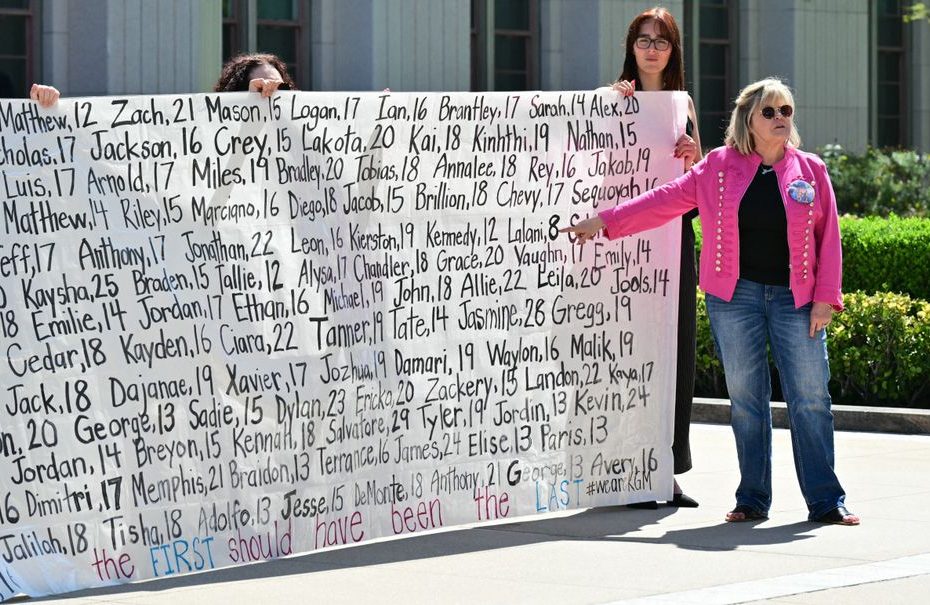 Matthew, 12 Zach, 21 Mason, 15 Logan, 17 Ian, 16 Brantley, 17 Sarah, 14 Alex,
cholas, 17 Jackson, 16 Grey, 15 Lakota, 20 Kai, 18 Kinhthi, 19 Nathan, 15
Luis, 17 Arnold, 17 Miles, 19 Bradley, 20 Tobias, 18 Annalee, 18 Rey, 16 Jakob, 19
Matthew, 14 Riley, 15 Marciano, 16 Diego, 18 Jacob, 15 Brillion, 18 Chevy, 17 Sequoyah 16
eff, 17 Anthony, 17 Jonathan, 22 Leon, 16 Kierston, 19 Kennedy, 12 Lalani, 8
Kaysha, 25 Braden, 15 Tallie, 12 Alysa, 17 Chandler, 18 Grace, 20 Vaughn, 17 Emily, 14
18 Emilie, 14 Jordan, 17 Ethan, 16 Michael, 19 John, 18 Allie, 22 Leila, 20 Jools, 14
Cedar, 18 Kayden, 16 Ciara, 22 Tanner, 19 Tate, 14 Jasmine, 28 Gregg, 19
Jack, 18 Dajanae, 19 Xavier, 17 Jozhua, 19 Damari, 19 Waylon, 16 Malik, 19
on, 20 George, 13 Sadie, 15 Dylan, 23 Ericka, 20 Zackery, 15 Landon, 22 Kaya, 17
Jordan, 14 Breyon, 15 Kennah, 18 Salvatore, 29 Tyler, 19 Jordin, 13 Kevin, 24
16 Dimitri, 17 Memphis, 21 Braidon, 13 Terrance, 16 James, 24 Elise, 13 Paris, 13
Jalilah, 18 Tisha, 18 Adolfo, 13 Jesse, 15 DeMonte, 18 Anthony, 21 George, 13 Avery, 16
the FIRST should have been the LAST #weareKGM